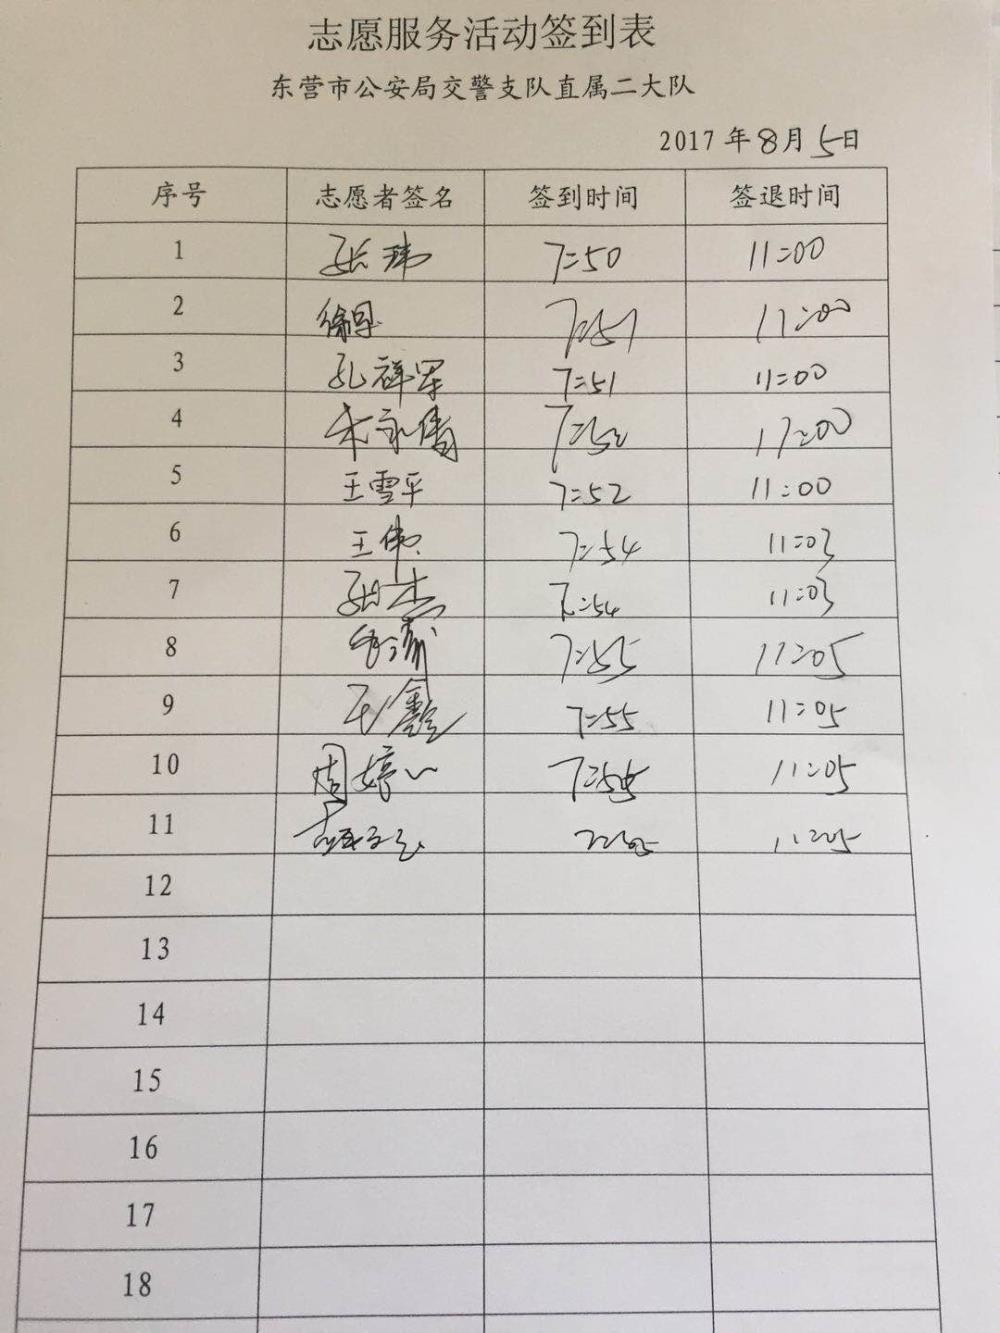 志愿服务活动签到表
东营市公安局交警支队直属二大队
2017 年 8 月 5 日
序号 志愿者签名 签到时间 签退时间
1 张玮 7:50 11:00
2 7:51 11:00
3 孔祥军 7:51 11:00
4 7:52 11:00
5 王雪平 7:52 11:00
6 王伟 7:54 11:03
7 张杰 7:54 11:03
8 7:55 11:05
9 王鑫 7:55 11:05
10 周婷 7:55 11:05
11 11:05
12
13
14
15
16
17
18